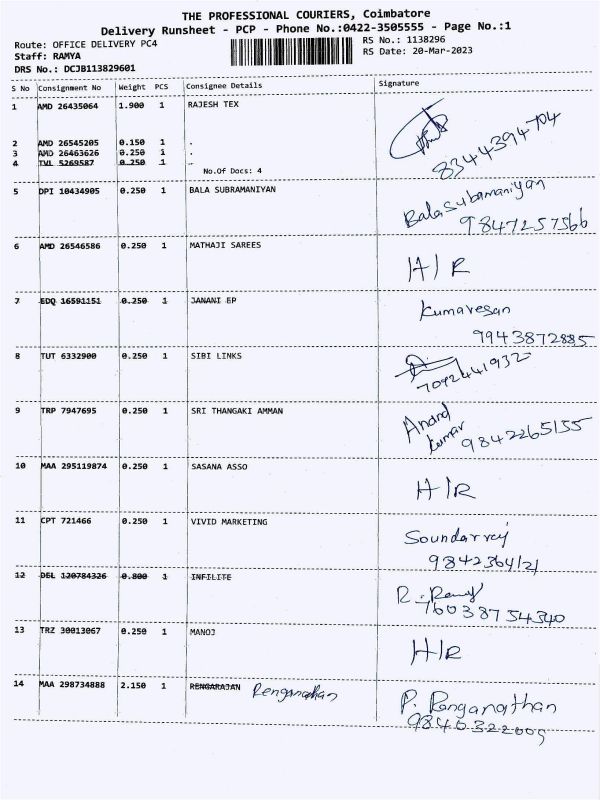 THE PROFESSIONAL COURIERS, Coimbatore
Delivery Runsheet - PCP - Phone No.:0422-3505555 - Page No.:1
Route: OFFICE DELIVERY PC4
RS No.: 1138296
Staff: RAMYA
RS Date: 20-Mar-2023
DRS No.: DCJB113829601
S No Consignment No Weight PCS Consignee Details Signature
1 AMD 26435064 1.900 1 RAJESH TEX
8344394704
2 AMD 26545205 0.150 1 .
3 AMD 26463626 0.250 1 .
4 TVL 5269587 0.250 1
No.Of Docs: 4
5 DPI 10434905 0.250 1 BALA SUBRAMANIYAN
Balasubramaniyan
9847257566
6 AMD 26546586 0.250 1 MATHAJI SAREES
H/R
7 EDQ 16591151 0.250 1 JANANI EP
Kumaresan
9943872885
8 TUT 6332900 0.250 1 SIBI LINKS
7092441932
9 TRP 7947695 0.250 1 SRI THANGAKI AMMAN
Anand
Kumar 9842265155
10 MAA 295119874 0.250 1 SASANA ASSO
H/R
11 CPT 721466 0.250 1 VIVID MARKETING
Soundarraj
9842364121
12 DEL 120784326 0.800 1 INFILITE
76038754340
13 TRZ 30013067 0.250 1 MANOJ
H/R
14 MAA 298734888 2.150 1 RENGARAJAN Renganathan
P. Ranganathan
9840322005